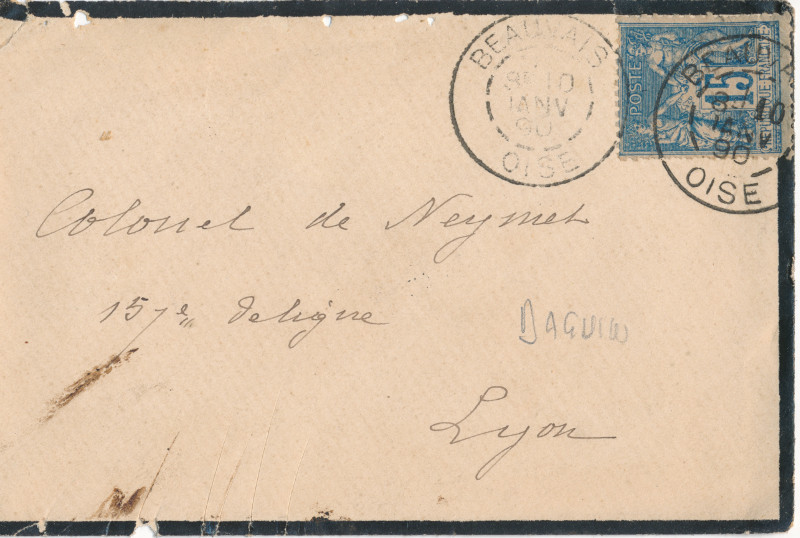 BEAUVAIS
8E 10
JANV
90
OISE
POSTES
15
REPUBLIQUE FRANCAISE
BEAUVA
8E 10
JANV
90
OISE
Colonel de Neymet
157e de ligne
DAGUIN
Lyon